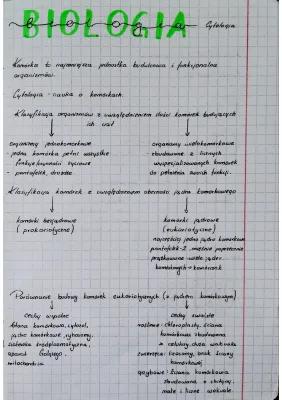 BIOLOGIA
Cytologia
Komórka to najmniejsza jednostka budulcowa i funkcjonalna
organizmów.
Cytologia - nauka o komórkach.
Klasyfikacja organizmów z uwzględnieniem ilości komórek budujących
ich
organizmy jednokomórkowe
- jedna komórka pełni wszystkie
funkcje życiowe
- pantofelek, drożdże
organizmy wielokomórkowe
- zbudowane z licznych
wyspecjalizowanych komórek
do pełnienia swoich funkcji.
Klasyfikacja komórek z uwzględnieniem obecności jądra komórkowego
komórki bezjądrowe
(prokariotyczne)
komórki jądrowe
(eukariotyczne)
najczęściej jedno jądro komórkowe
pantofelek - 2, mięśnie poprzecznie
prążkowane - wiele jąder
komórkowych
Porównanie budowy komórek eukariotycznych (z jądrem komórkowym)
cechy wspólne
błona komórkowa, cytozol,
jądro komórkowe, rybosomy,
siateczka śródplazmatyczna,
aparat Golgiego,
mitochondria
cechy swoiste
roślinne: chloroplasty, ściana
komórkowa zbudowana
z celulozy, duża wakuola
zwierzęce: lizosomy, brak ściany
komórkowej
grzybowe: ściana komórkowa
zbudowana z chityny,
małe i liczne wakuole.